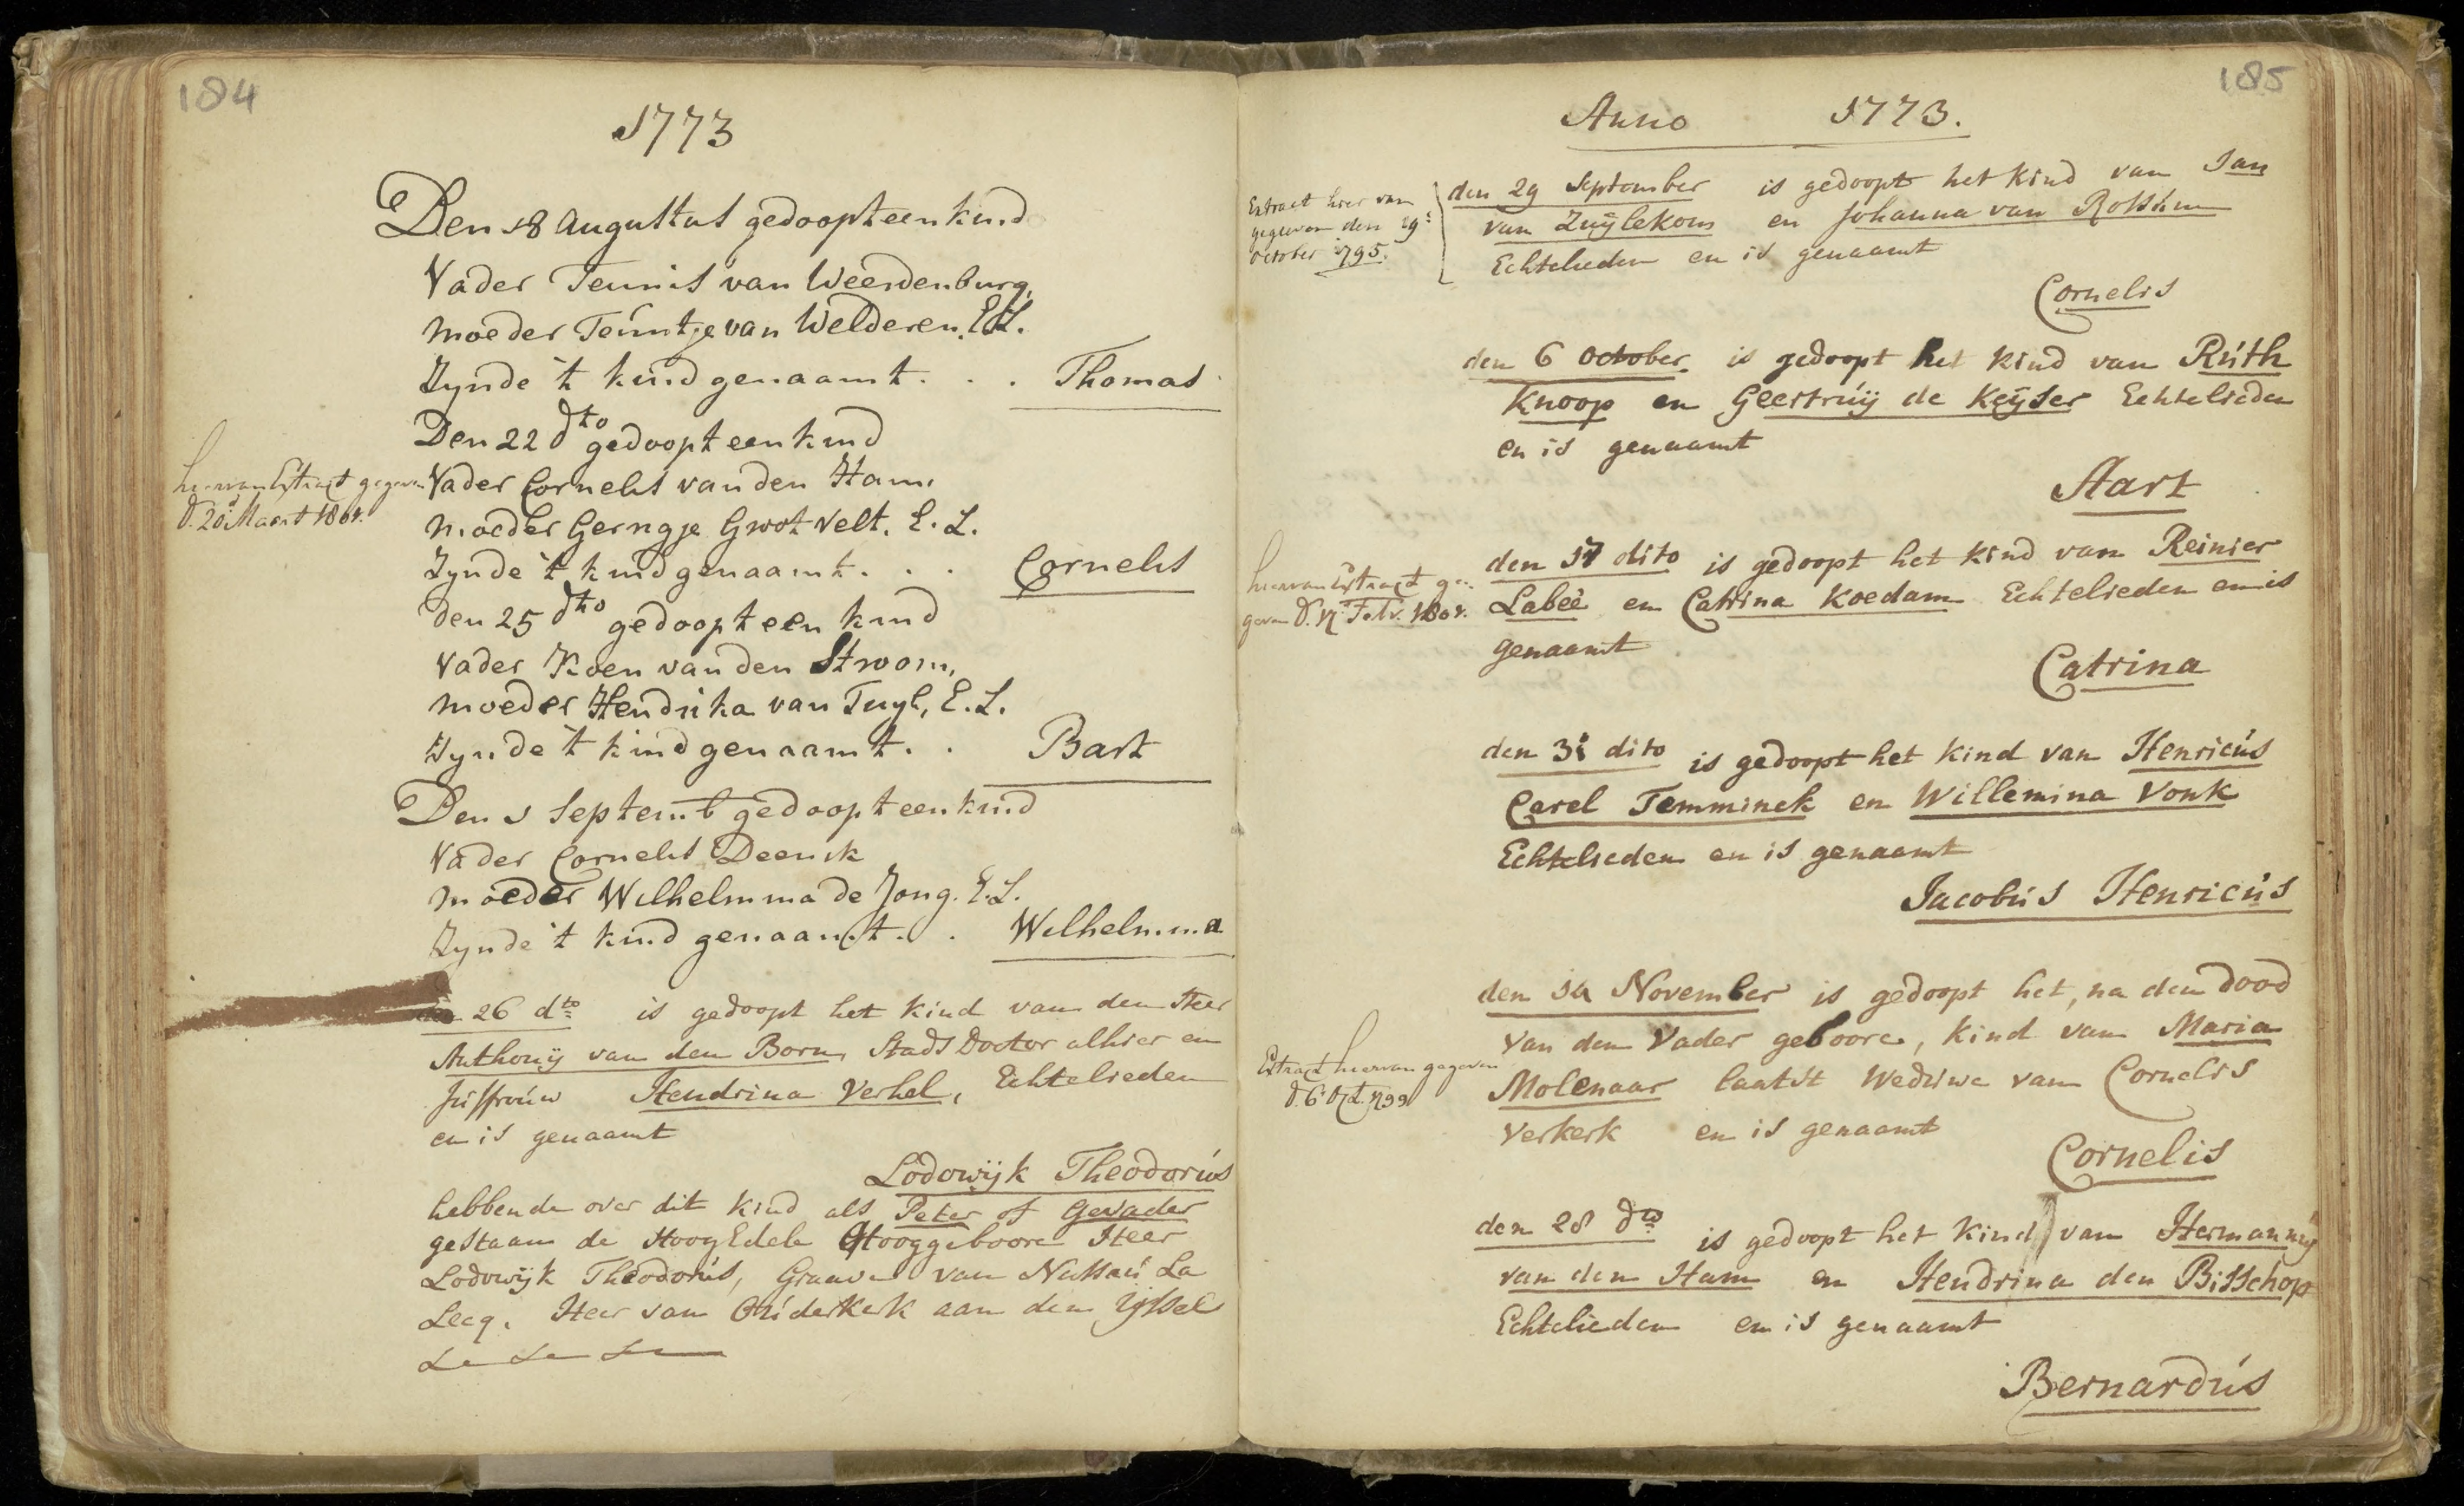 184
1773
Den 18 Augustus gedoopt een kind
Vader Teunis van Weerdenburg,
moeder Teuntje van Welderen. E.L.
Zynde 't kind genaamt . . . Thomas
Den 22 dto gedoopt een kind
hiervan Extract gegeven
d. 20 Maart
Vader Cornelis van den Ham,
moeder Gerngje Grootvelt. E. L.
Zynde 't kind genaamt . . . Cornelis
Den 25 dto gedoopt een kind
Vader Koen van den Stroom,
moeder Hendrika van Tuyl, E. L.
Zynde 't kind genaamt . . Bart
Den 1 Septemb gedoopt een kind
Vader Cornelis Deenik
moeder Wilhelmina de Jong. E.L.
Zynde 't kind genaamt . . Wilhelmina
26 dto is gedoopt het kind van den Heer
Anthonij van den Born, Stads Doctor alhier en
Juffrouw Hendrina Verhel, Echtelieden
en is genaamt
Lodowijk Theodorus
hebbende over dit kind als Peter of Gevader
gestaan de HoogEdele Hooggeboore Heer
Lodowijk Theodorus, Graave van Nassau La
Lecq, Heer van Ouderkerk aan den Yssel
185
Anno 1773.
Extract hier van
gegeven den 29
October 1795.
den 29 September is gedoopt het kind van Jan
van Zuijlekom en Johanna van Rossum
Echtelieden en is genaamt
Cornelis
den 6 October is gedoopt het kind van Ruth
Knoop en Geertruij de Keijser Echtelieden
en is genaamt
Aart
hiervan Extract ge-
geven d. 17 Febr.
den 17 dito is gedoopt het kind van Reinier
Labeè en Catrina Koedam Echtelieden en is
genaamt
Catrina
den 31 dito is gedoopt het kind van Henricus
Carel Temminck en Willemina Vonk
Echtelieden en is genaamt
Jacobus Henricus
den 14 November is gedoopt het, na den dood
van den Vader geboore, kind van Maria
Extract hiervan gegeven
d. 6 Oct. 1799
Molenaar laatst Weduwe van Cornelis
Verkerk en is genaamt
Cornelis
den 28 dto is gedoopt het kind van Hermannus
van den Ham en Hendrina den Bisschop
Echtelieden en is genaamt
Bernardus